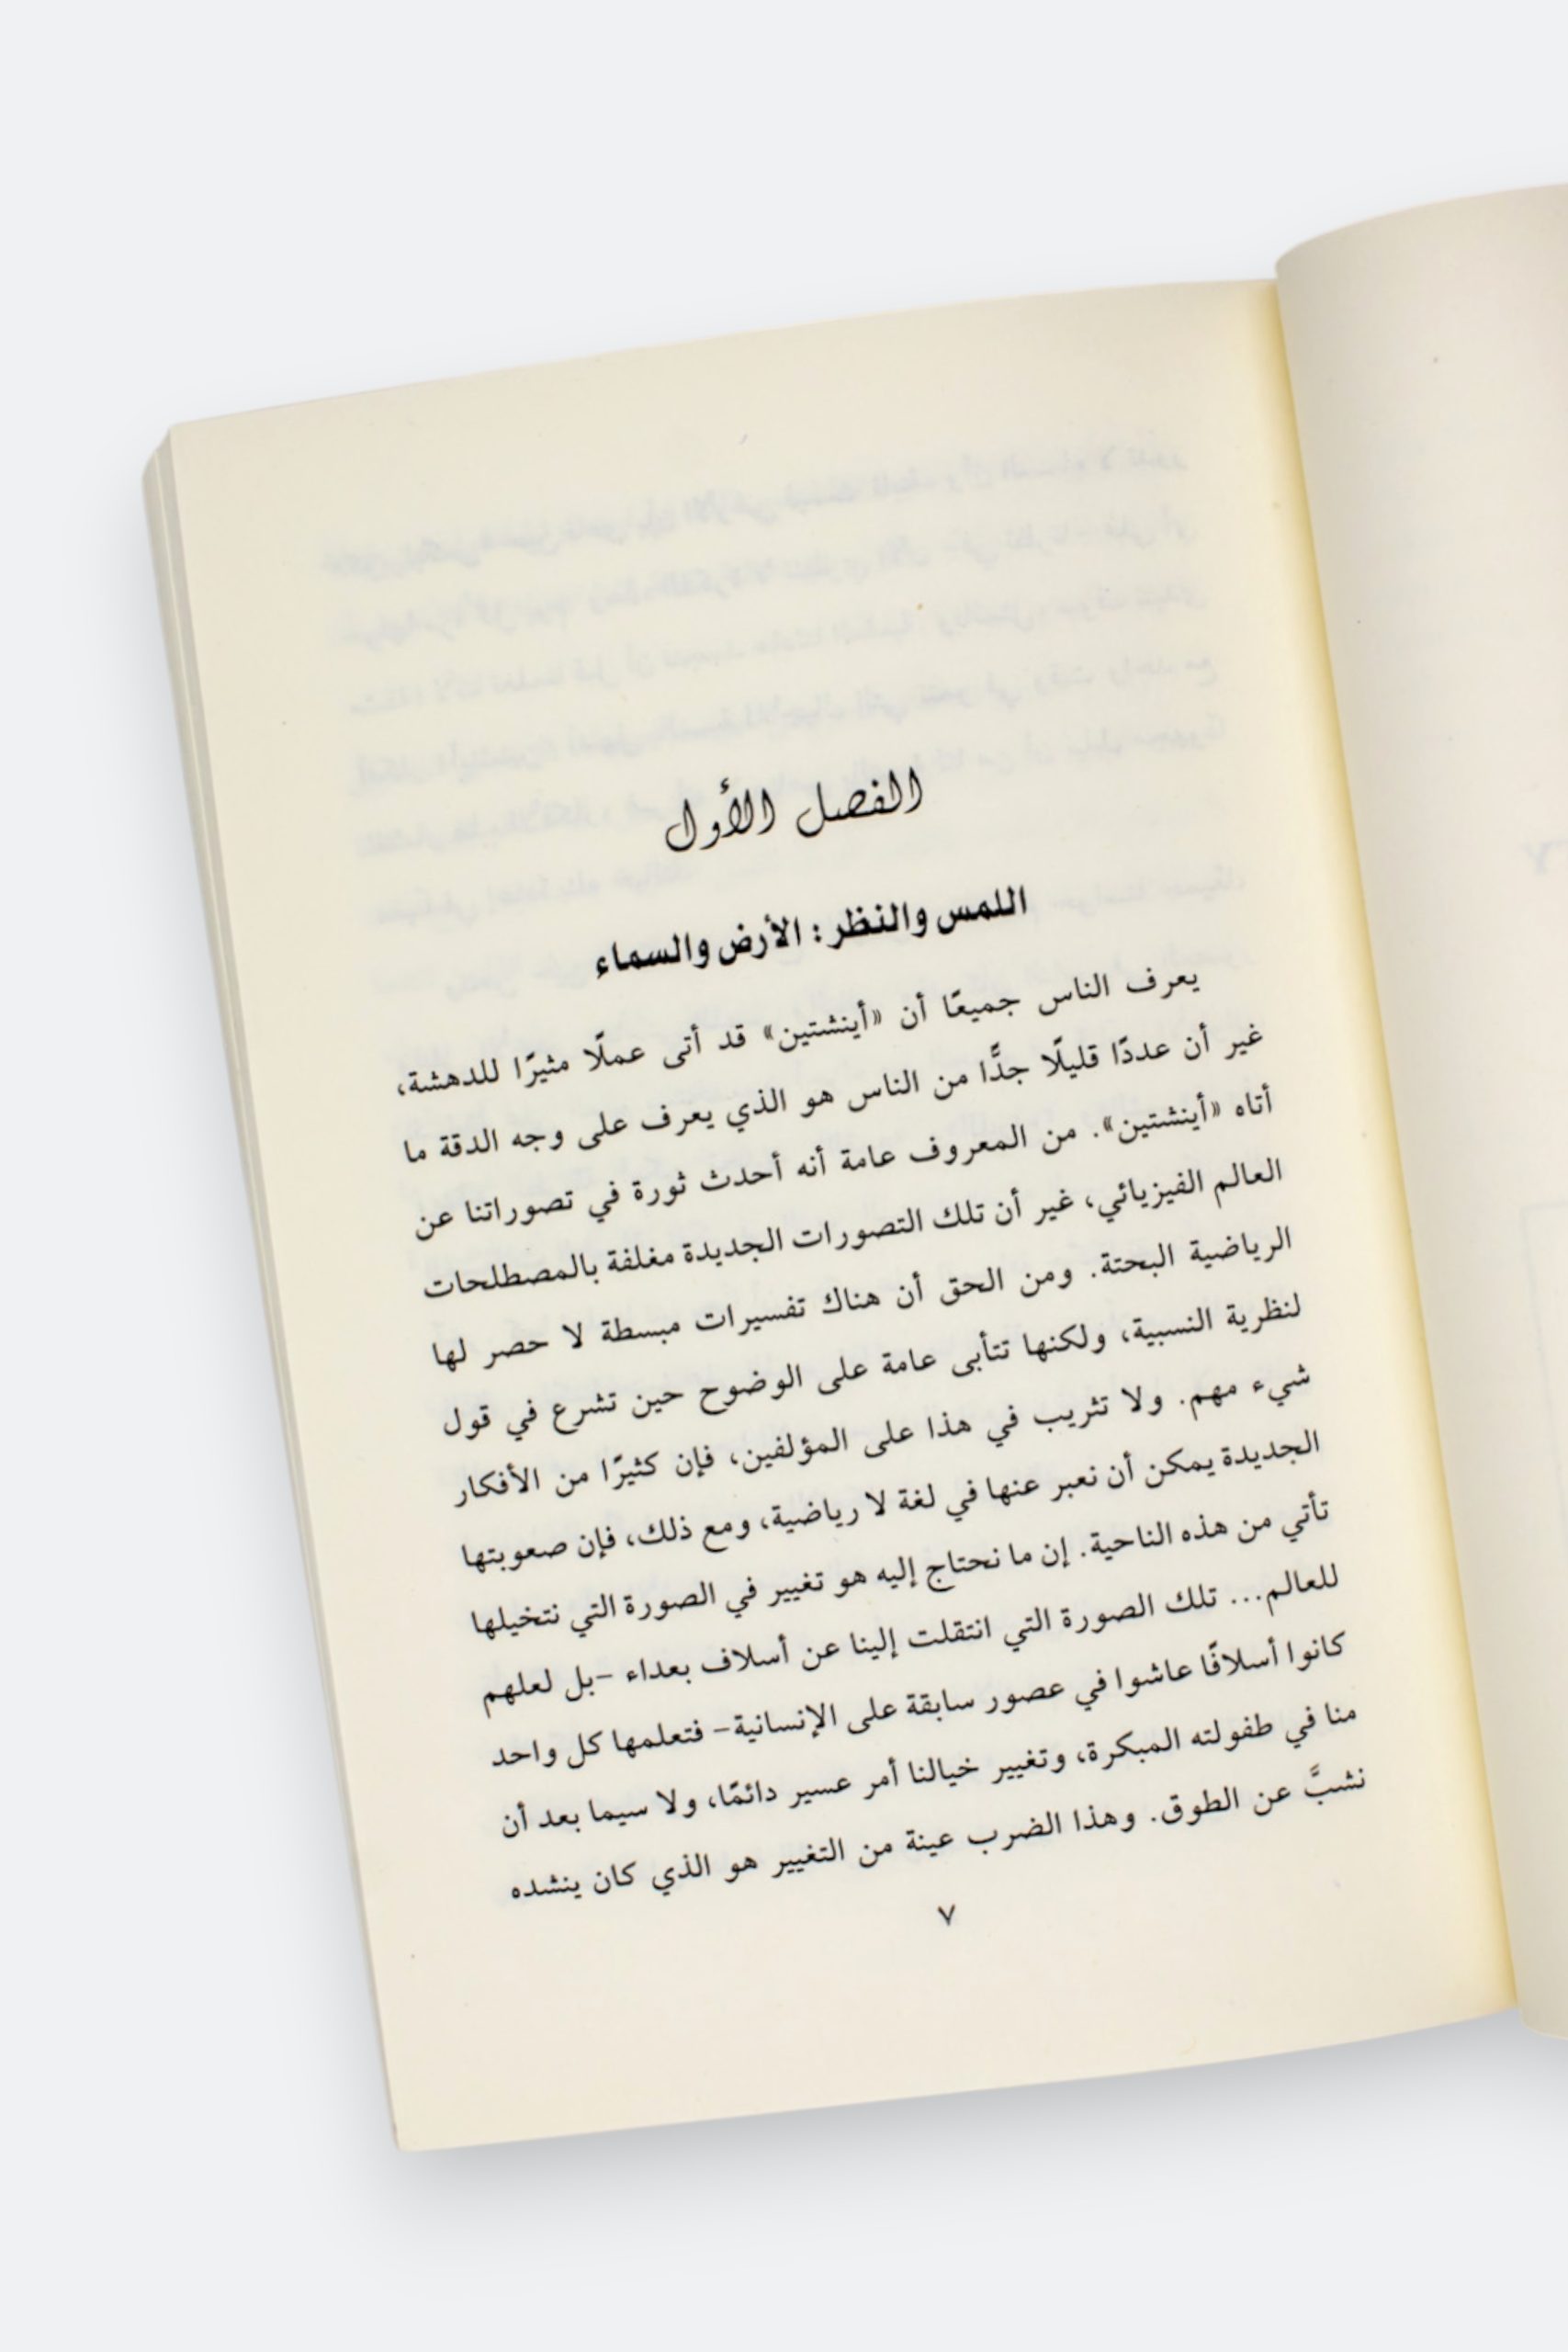 الفصل الأول
اللمس والنظر: الأرض والسماء
يعرف الناس جميعًا أن «أينشتين» قد أتى عملًا مثيرًا للدهشة،
غير أن عددًا قليلًا جدًّا من الناس هو الذي يعرف على وجه الدقة ما
أتاه «أينشتين». من المعروف عامة أنه أحدث ثورة في تصوراتنا عن
العالم الفيزيائي، غير أن تلك التصورات الجديدة مغلفة بالمصطلحات
الرياضية البحتة. ومن الحق أن هناك تفسيرات مبسطة لا حصر لها
لنظرية النسبية، ولكنها تتأبى عامة على الوضوح حين تشرع في قول
شيء مهم. ولا تثريب في هذا على المؤلفين، فإن كثيرًا من الأفكار
الجديدة يمكن أن نعبر عنها في لغة لا رياضية، ومع ذلك، فإن صعوبتها
تأتي من هذه الناحية. إن ما نحتاج إليه هو تغيير في الصورة التي نتخيلها
للعالم... تلك الصورة التي انتقلت إلينا عن أسلاف بعداء -بل لعلهم
كانوا أسلافًا عاشوا في عصور سابقة على الإنسانية- فتعلمها كل واحد
منا في طفولته المبكرة، وتغيير خيالنا أمر عسير دائمًا، ولا سيما بعد أن
نشبَّ عن الطوق. وهذا الضرب عينة من التغيير هو الذي كان ينشده
٧